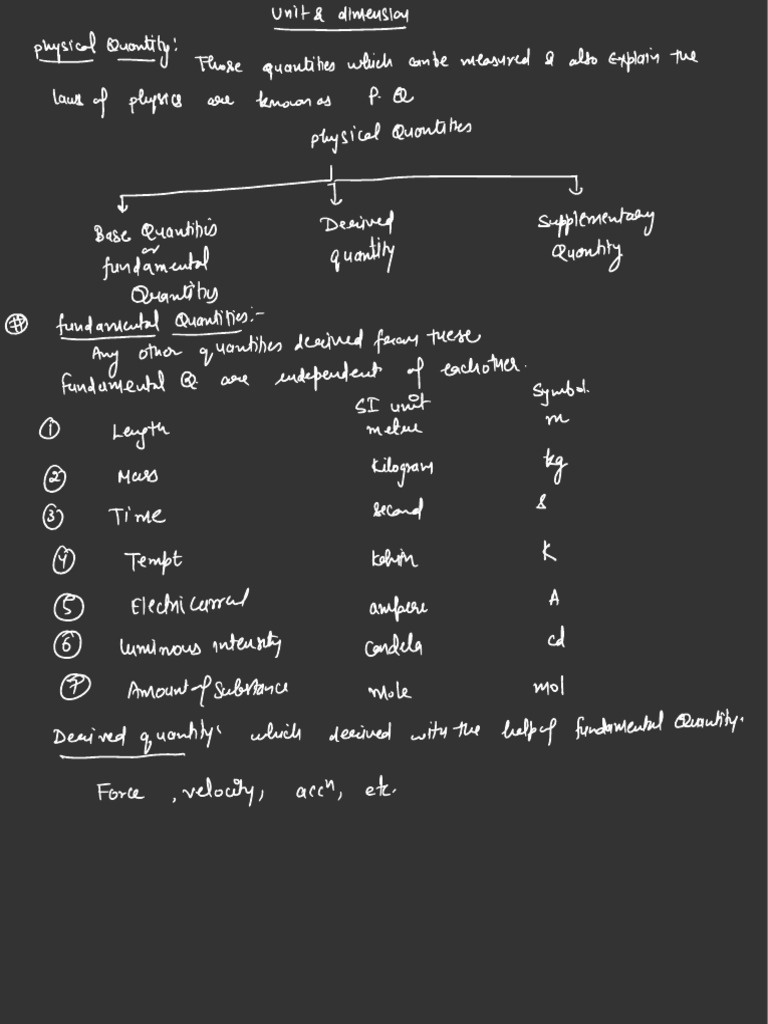 Unit & dimension
physical Quantity: Those quantities which can be measured & also Explain the
laws of physics are known as P.Q
physical Quantities
Base Quantitis
or
fundamental
Quantitis
Derived
quantity
Supplementary
Quantity
# fundamental Quantities:-
Any other quantities derived from these
fundamental Q are independent of each other.
SI unit Symbol.
① Length metre m
② Mass kilogram kg
③ Time second s
④ Tempt kelvin K
⑤ Electric current ampere A
⑥ luminous intensity Candela cd
⑦ Amount of Substance mole mol
Derived quantity: which derived with the help of fundamental Quantity.
Force , velocity, accⁿ, etc.